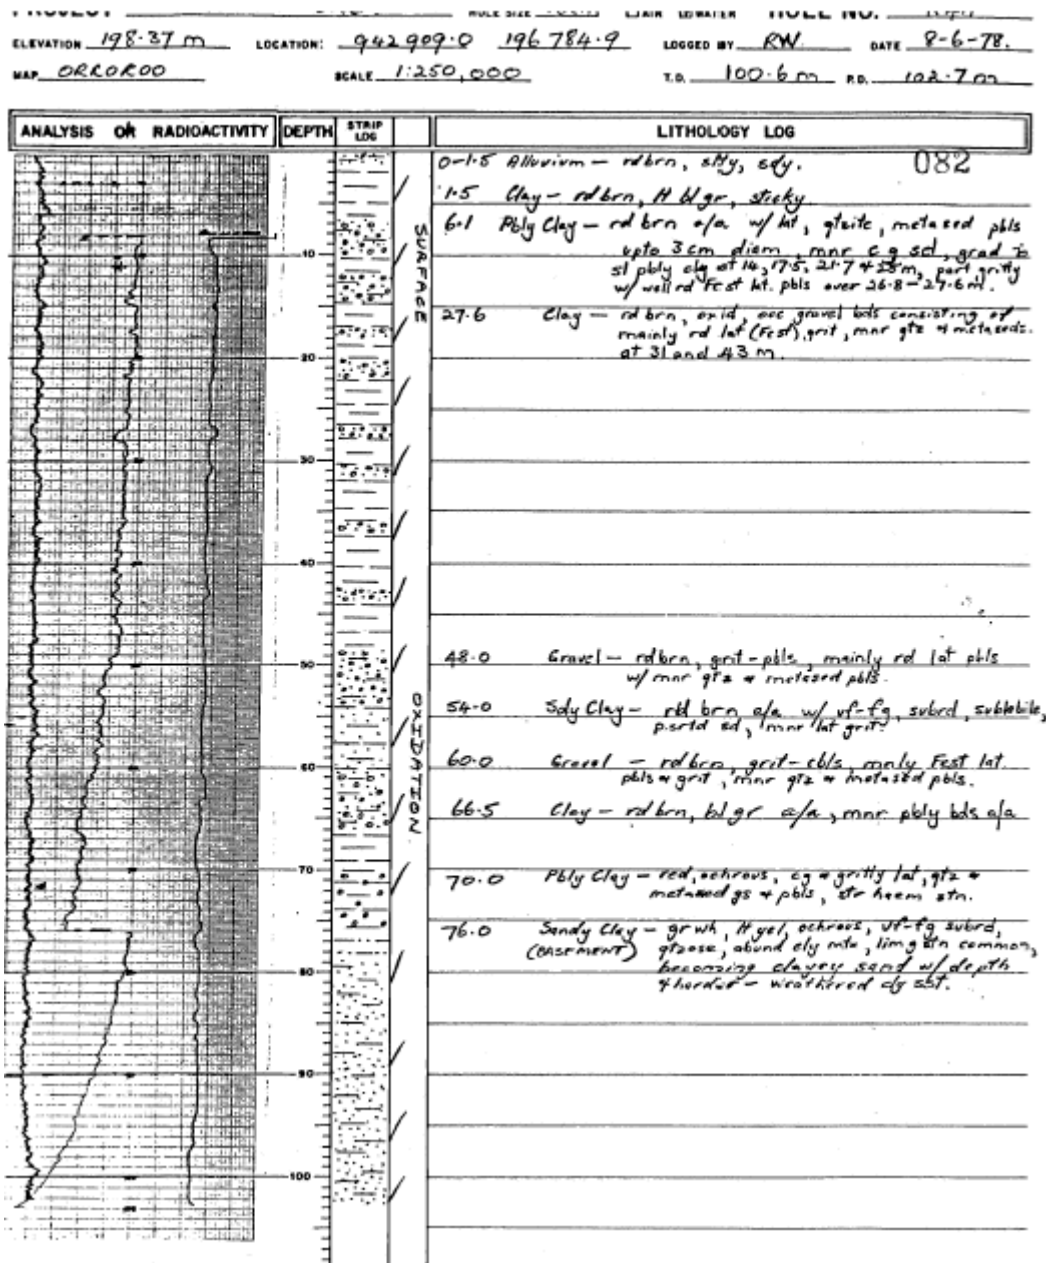 PROJECT HOLE SIZE AIR WATER HOLE NO.
ELEVATION 198.37 m LOCATION: 942 909.0 196 784.9 LOGGED BY RW. DATE 8-6-78.
MAP ORROROO SCALE 1:250,000 T.D. 100.6 m P.D. 102.7 m
ANALYSIS OR RADIOACTIVITY DEPTH STRIP LOG LITHOLOGY LOG
082
0-1.5 Alluvium — rd brn, slty, sdy.
1.5 Clay — rd brn, lt bl gr, sticky
6.1 Pbly Clay — rd brn a/a w/ lat, qtzite, metased pbls
upto 3 cm diam, mnr c g sd, grad to
sl pbly clay at 14, 17.5, 21.7 + 25m, part gritty
w/ well rd Fest lat. pbls over 26.8 - 27.6 m.
27.6 Clay — rd brn, oxid, occ gravel bds consisting of
mainly rd lat (Fest), grit, mnr qtz + metaseds.
at 31 and 43 m.
48.0 Gravel — rd brn, grit - pbls, mainly rd lat pbls
w/ mnr qtz + metased pbls.
54.0 Sdy Clay — rd brn a/a w/ vf-fg, subrd, sublabile,
p.srtd sd, mnr lat grit.
60.0 Gravel — rd brn, grit-cbls, mnly Fest lat
pbls + grit, mnr qtz + metased pbls.
66.5 Clay — rd brn, bl gr a/a, mnr pbly bds a/a
70.0 Pbly Clay — red, ochrous, cg + gritty lat, qtz +
metased gs + pbls, str haem stn.
76.0 Sandy Clay — gr wh, lt yel, ochrous, vf-fg subrd,
(BASEMENT) qtzose, abund cly mtx, limg stn common,
becoming clayey sand w/ depth
+ harder — weathered cly sst.
SURFACE
OXIDATION
10
20
30
40
50
60
70
80
90
100